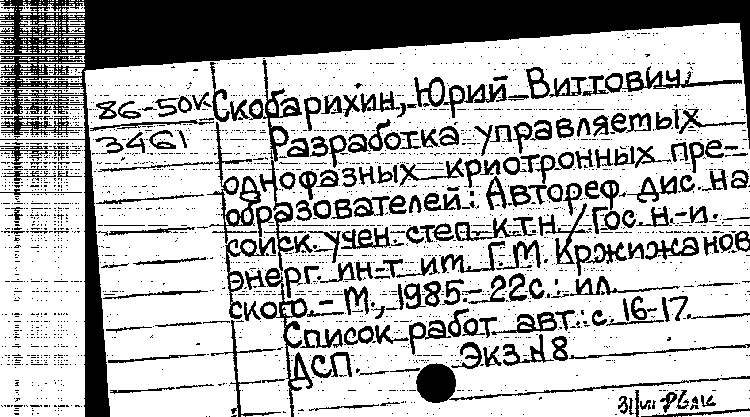 86-50К Скобарихин, Юрий Виттович.
3461 Разработка управляемых
однофазных криотронных пре-
образователей: Автореф. дис. на
соиск. учен. степ. к.т.н. / Гос. н.-и.
энерг. ин-т им. Г.М. Кржижанов
ского. - М., 1985. - 22с.: ил.
Список работ авт.: с. 16-17.
ДСП. Экз. N 8.